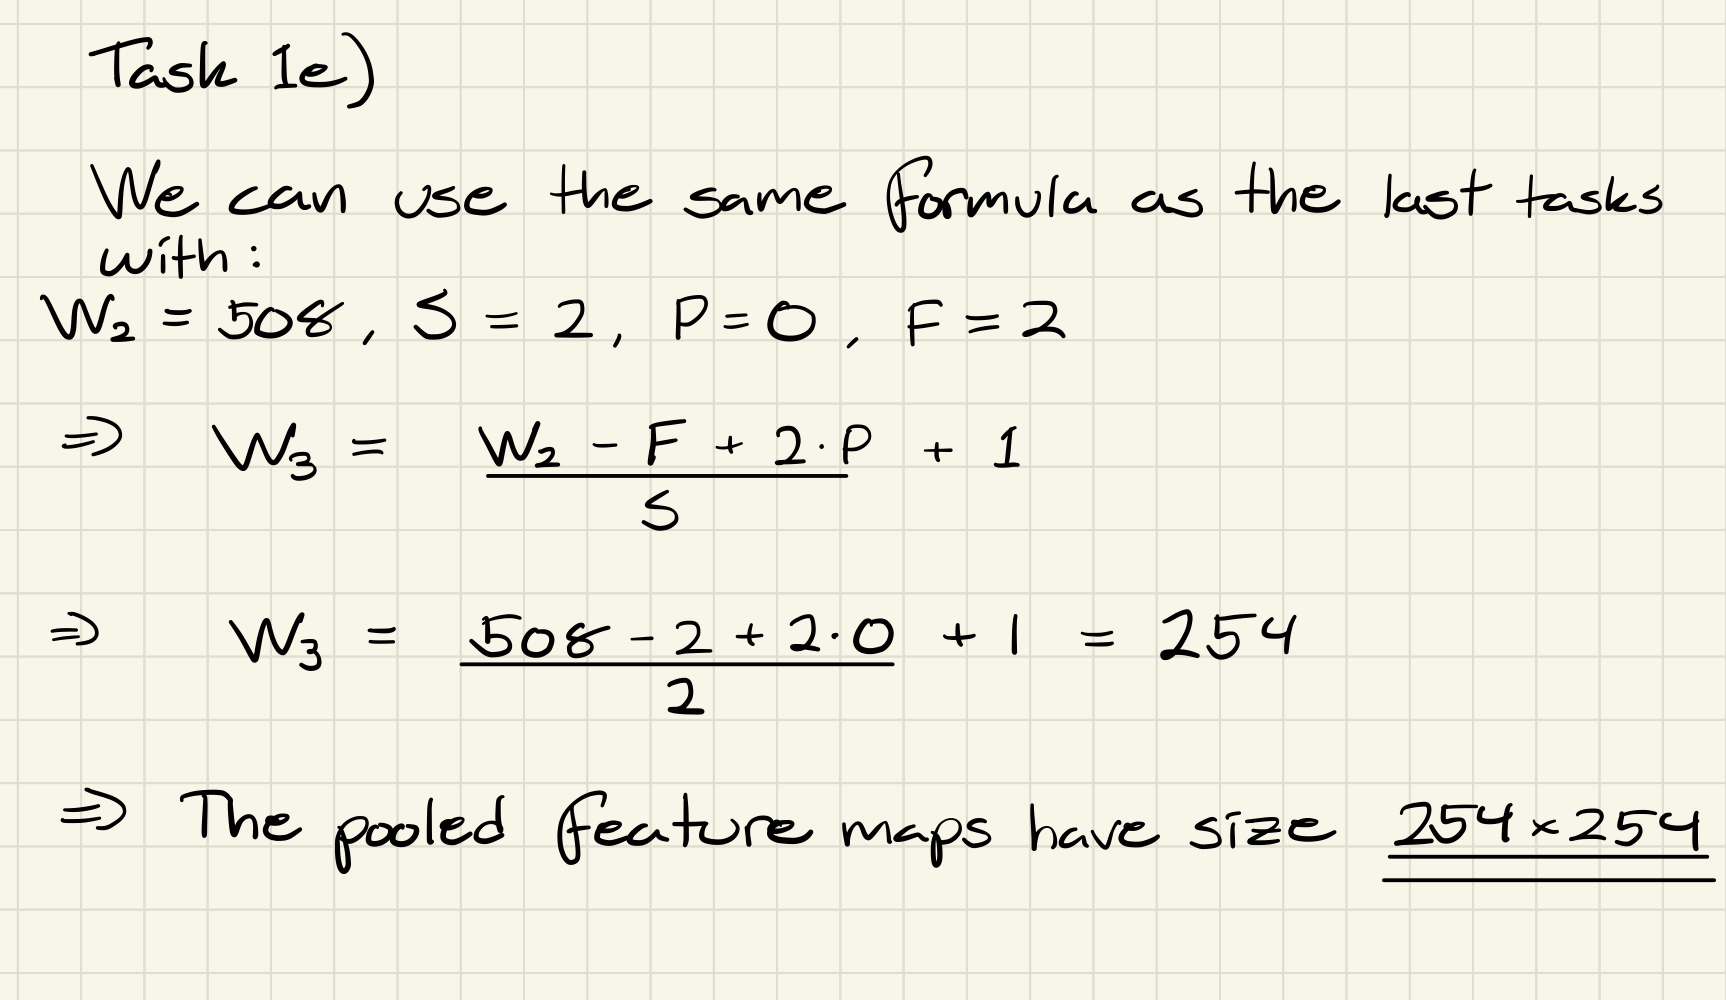 Task 1e)
We can use the same formula as the last tasks
with:
W₂ = 508, S = 2, P = 0, F = 2
⇒ W₃ = (W₂ - F + 2·P)/S + 1
⇒ W₃ = (508 - 2 + 2·0)/2 + 1 = 254
⇒ The pooled feature maps have size 254×254